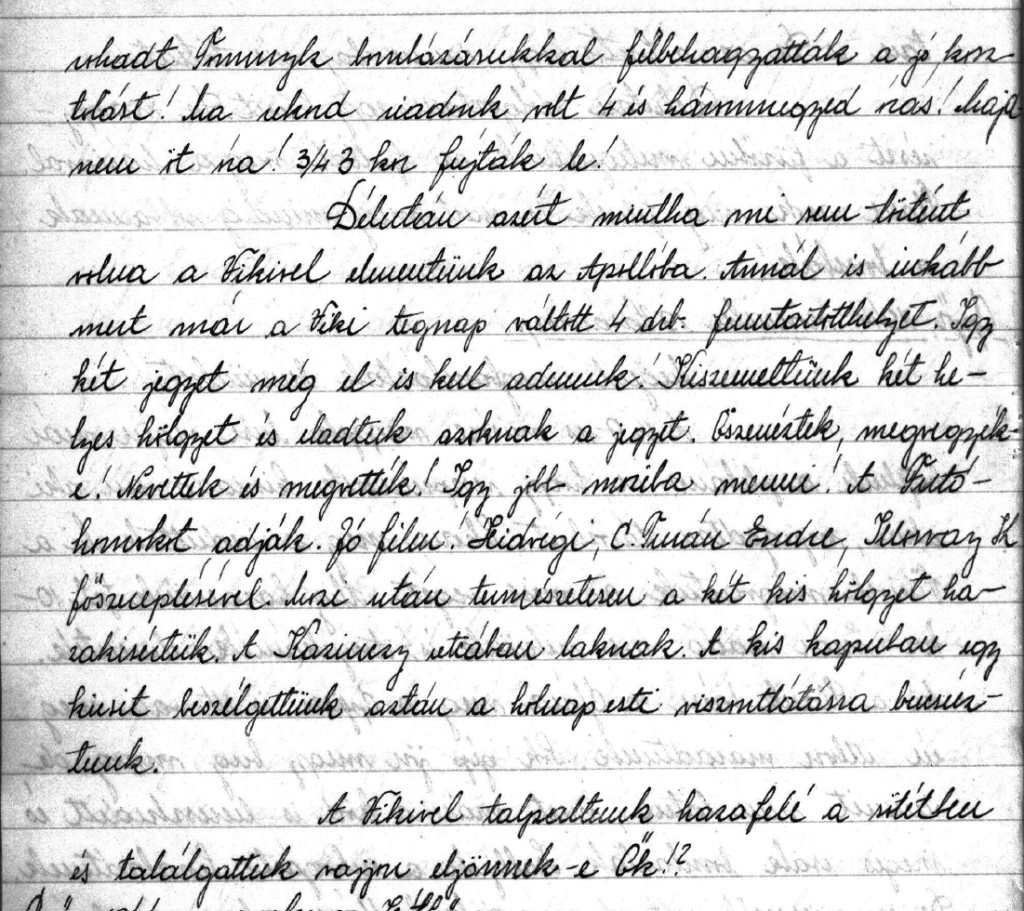 rohadt Tommyk bombázásukkal félbehagyatták a jó kosz-
tolást! Ma rekord riadónk volt 4 és háromnegyed órás! Majd
nem öt óra! 3/4 3 kor fújták le!
Délután azért mintha mi sem történt
volna a Vikivel elmentünk az Apollóba. Annál is inkább
mert már a Viki tegnap váltott 4 drb. fenntartotthelyet. Igy
két jegyet még el is kell adnunk! Kiszemeltünk két he-
lyes hölgyet és eladtuk azoknak a jegyet. Öszenéztek, megvegyék-
e! Nevettek és megvették! Igy jobb moziba menni! A Futó-
homokot adják. Jó film! Hidvégi, C. Turán Endre,
főszereplésével. Mozi után természetesen a két kis hölgyet ha-
zakisértük. A Kazinczy utcában laknak. A kis kapuban egy
kicsit beszélgettünk aztán a holnap esti viszontlátásra bucsúz-
tunk.
A Vikivel talpaltunk hazafelé a sötétben
és találgattuk vajjon eljönnek-e Ők!?